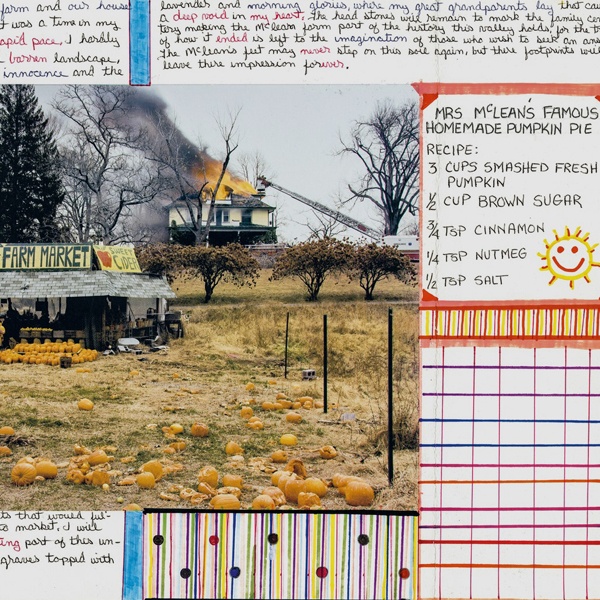 farm and our house
was a time in my
rapid pace, I hardly
barren landscape,
innocence and the
lavender and morning glories, where my great grandparents lay that cau
a deep void in my heart. The head stones will remain to mark the family cem
tery making the McLean farm part of the history this valley holds, for the tr
of how it ended is left to the imagination of those who wish to seek an ans
The McLean's feet may never step on this soil again, but there footprints will
leave there impression forever.
FARM MARKET
CIDER
MRS McLEAN'S FAMOUS
HOMEMADE PUMPKIN PIE
RECIPE:
3 CUPS SMASHED FRESH
PUMPKIN
1/2 CUP BROWN SUGAR
3/4 TSP CINNAMON
1/4 TSP NUTMEG
1/2 TSP SALT
ts that would ful-
to market, I will
ing part of this un-
graves topped with